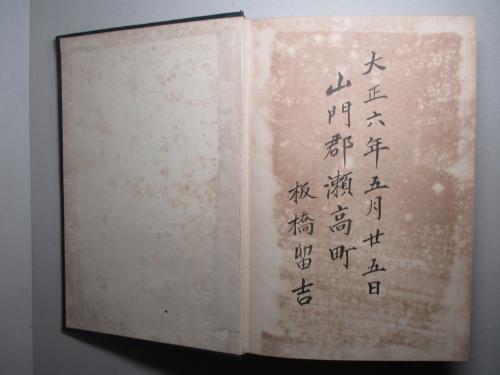 大正六年五月廿五日
山門郡瀬高町
板橋留吉